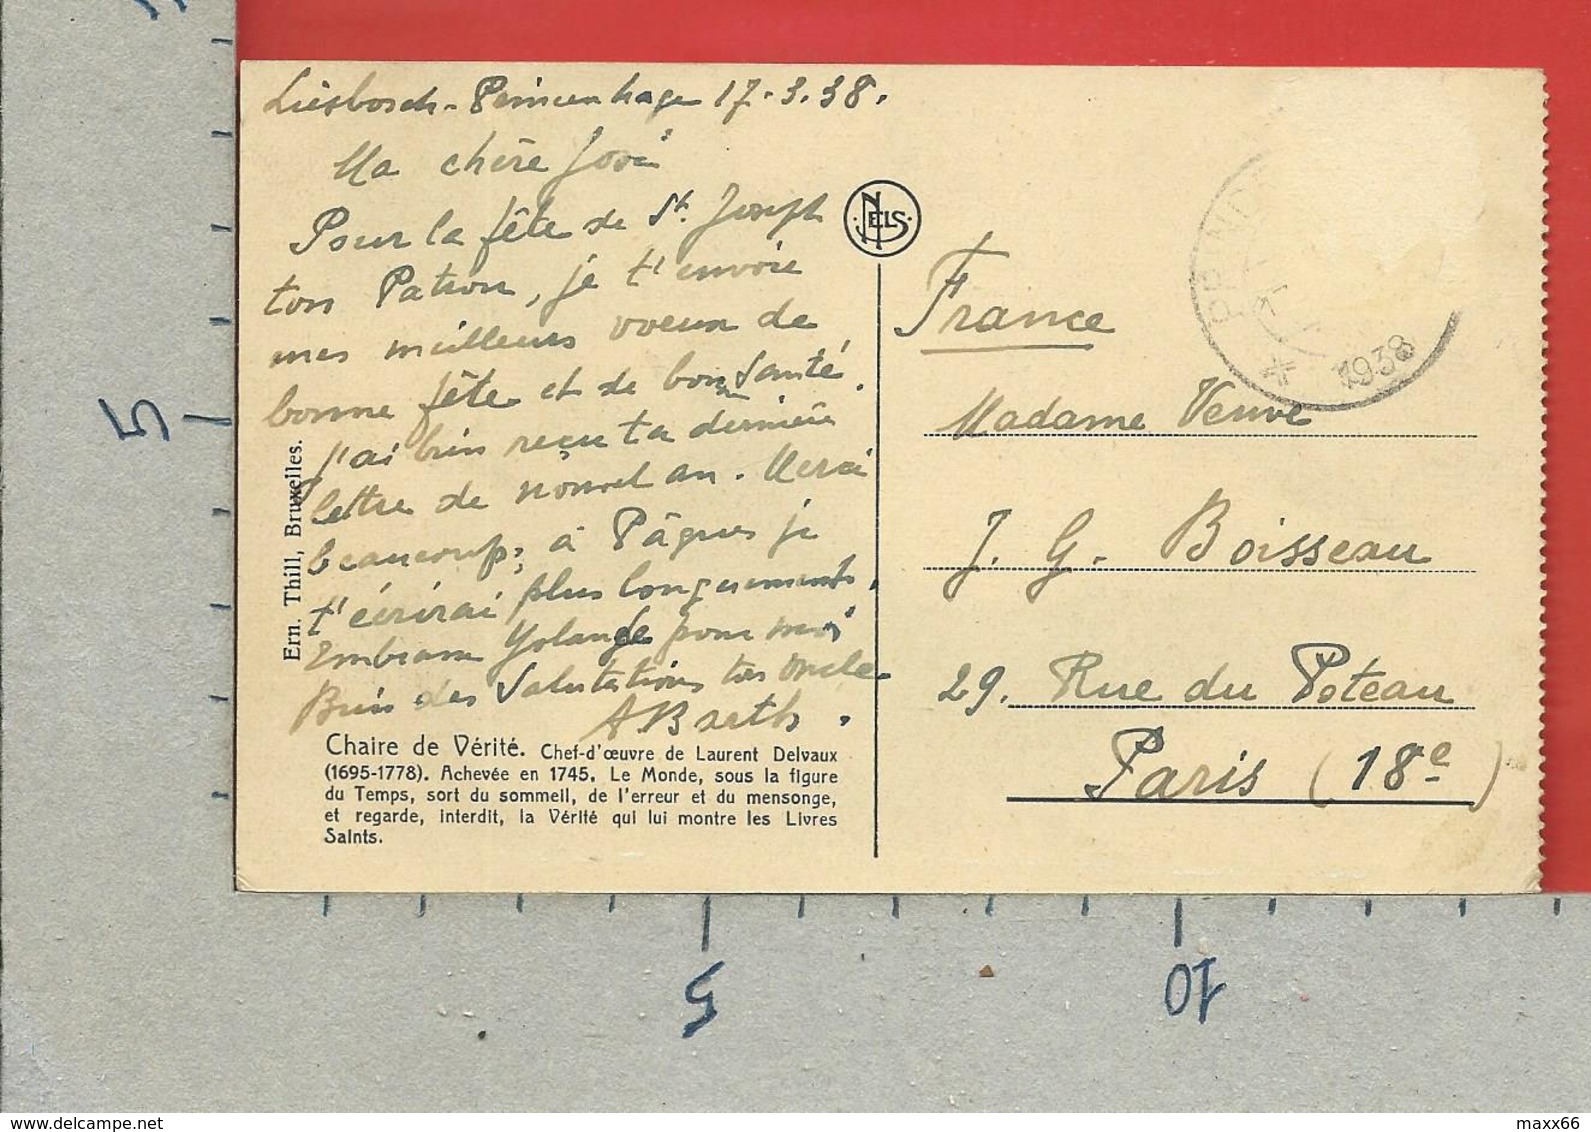 Liesbosch-Princenhage 17.3.38.
Ma chère José
Pour la fête de St. Joseph
ton Patron, je t'envoie
mes meilleurs voeux de
bonne fête et de bonne Santé.
J'ai bien reçu ta dernière
lettre de nouvel an. Merci
beaucoup; à Pâques je
t'écrirai plus longuement.
Embrasse Yolande pour moi
Bien des Salutations ton oncle
A Barth.
Ern. Thill, Bruxelles.
Chaire de Vérité. Chef-d'œuvre de Laurent Delvaux
(1695-1778). Achevée en 1745. Le Monde, sous la figure
du Temps, sort du sommeil, de l'erreur et du mensonge,
et regarde, interdit, la Vérité qui lui montre les Livres
Saints.
NELS
1938
France
Madame Veuve
J. G. Boisseau
29. Rue du Poteau
Paris (18e)
5
5
10
www.delcampe.net
maxx66